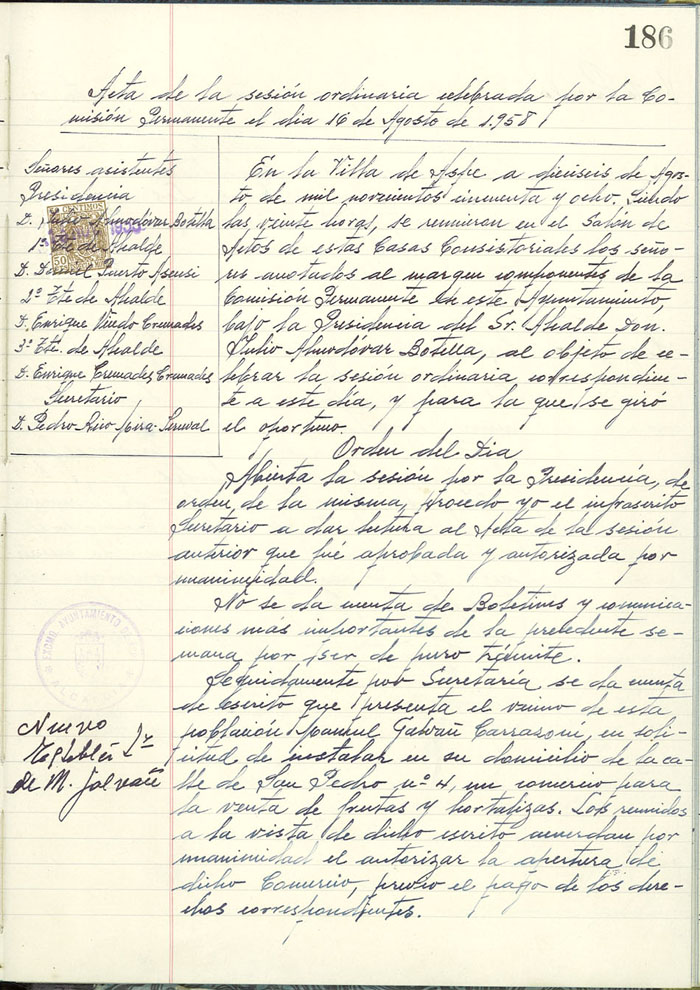 186
Acta de la sesión ordinaria celebrada por la Co-
misión Permanente el dia 16 de Agosto de 1.958
Señores asistentes
Presidencia
D. Julio Almodóvar Botella
1º Tte de Alcalde
D. Daniel Puerto Asensi
2º Tte de Alcalde
D. Enrique Cremades
3º Tte. de Alcalde
D. Enrique Cremades Cremades
Secretario
D. Pedro Rico Mira-
CENTIMOS
50
En la Villa de Aspe a dieciseis de Agos-
to, de mil novecientos cincuenta y ocho. Siendo
las veinte horas, se reunieron en el Salón de
Actos de estas Casas Consistoriales los seño-
res anotados al margen componentes de la
Comisión Permanente en este Ayuntamiento,
bajo la Presidencia del Sr. Alcalde Don.
Julio Almodóvar Botella, al objeto de ce-
lebrar la sesión ordinaria correspondien-
te a este día, y para la que, se giró
el oportuno.
Orden del Dia
Abierta la sesión por la Presidencia, de
orden de la misma, procedo yo el infrascrito
Secretario a dar lectura al Acta de la sesión
anterior que fué aprobada y autorizada por
unanimidad.
No se da cuenta de Boletines y comunica-
ciones más importantes de la precedente se-
mana por ser de puro trámite.
Seguidamente por Secretaria se da cuenta
de escrito que presenta el vecino de esta
población Manuel Galvañ Carrazoni, en soli-
citud de instalar en su domicilio de la ca-
lle de San Pedro nº 4, un comercio para
la venta de frutas y hortalizas. Los reunidos
a la vista de dicho escrito acuerdan por
unanimidad el autorizar la apertura de
dicho Comercio, previo el pago de los dere-
chos correspondientes.
EXCMO. AYUNTAMIENTO DE
ALCALDIA
Nuevo
de M. Galvañ